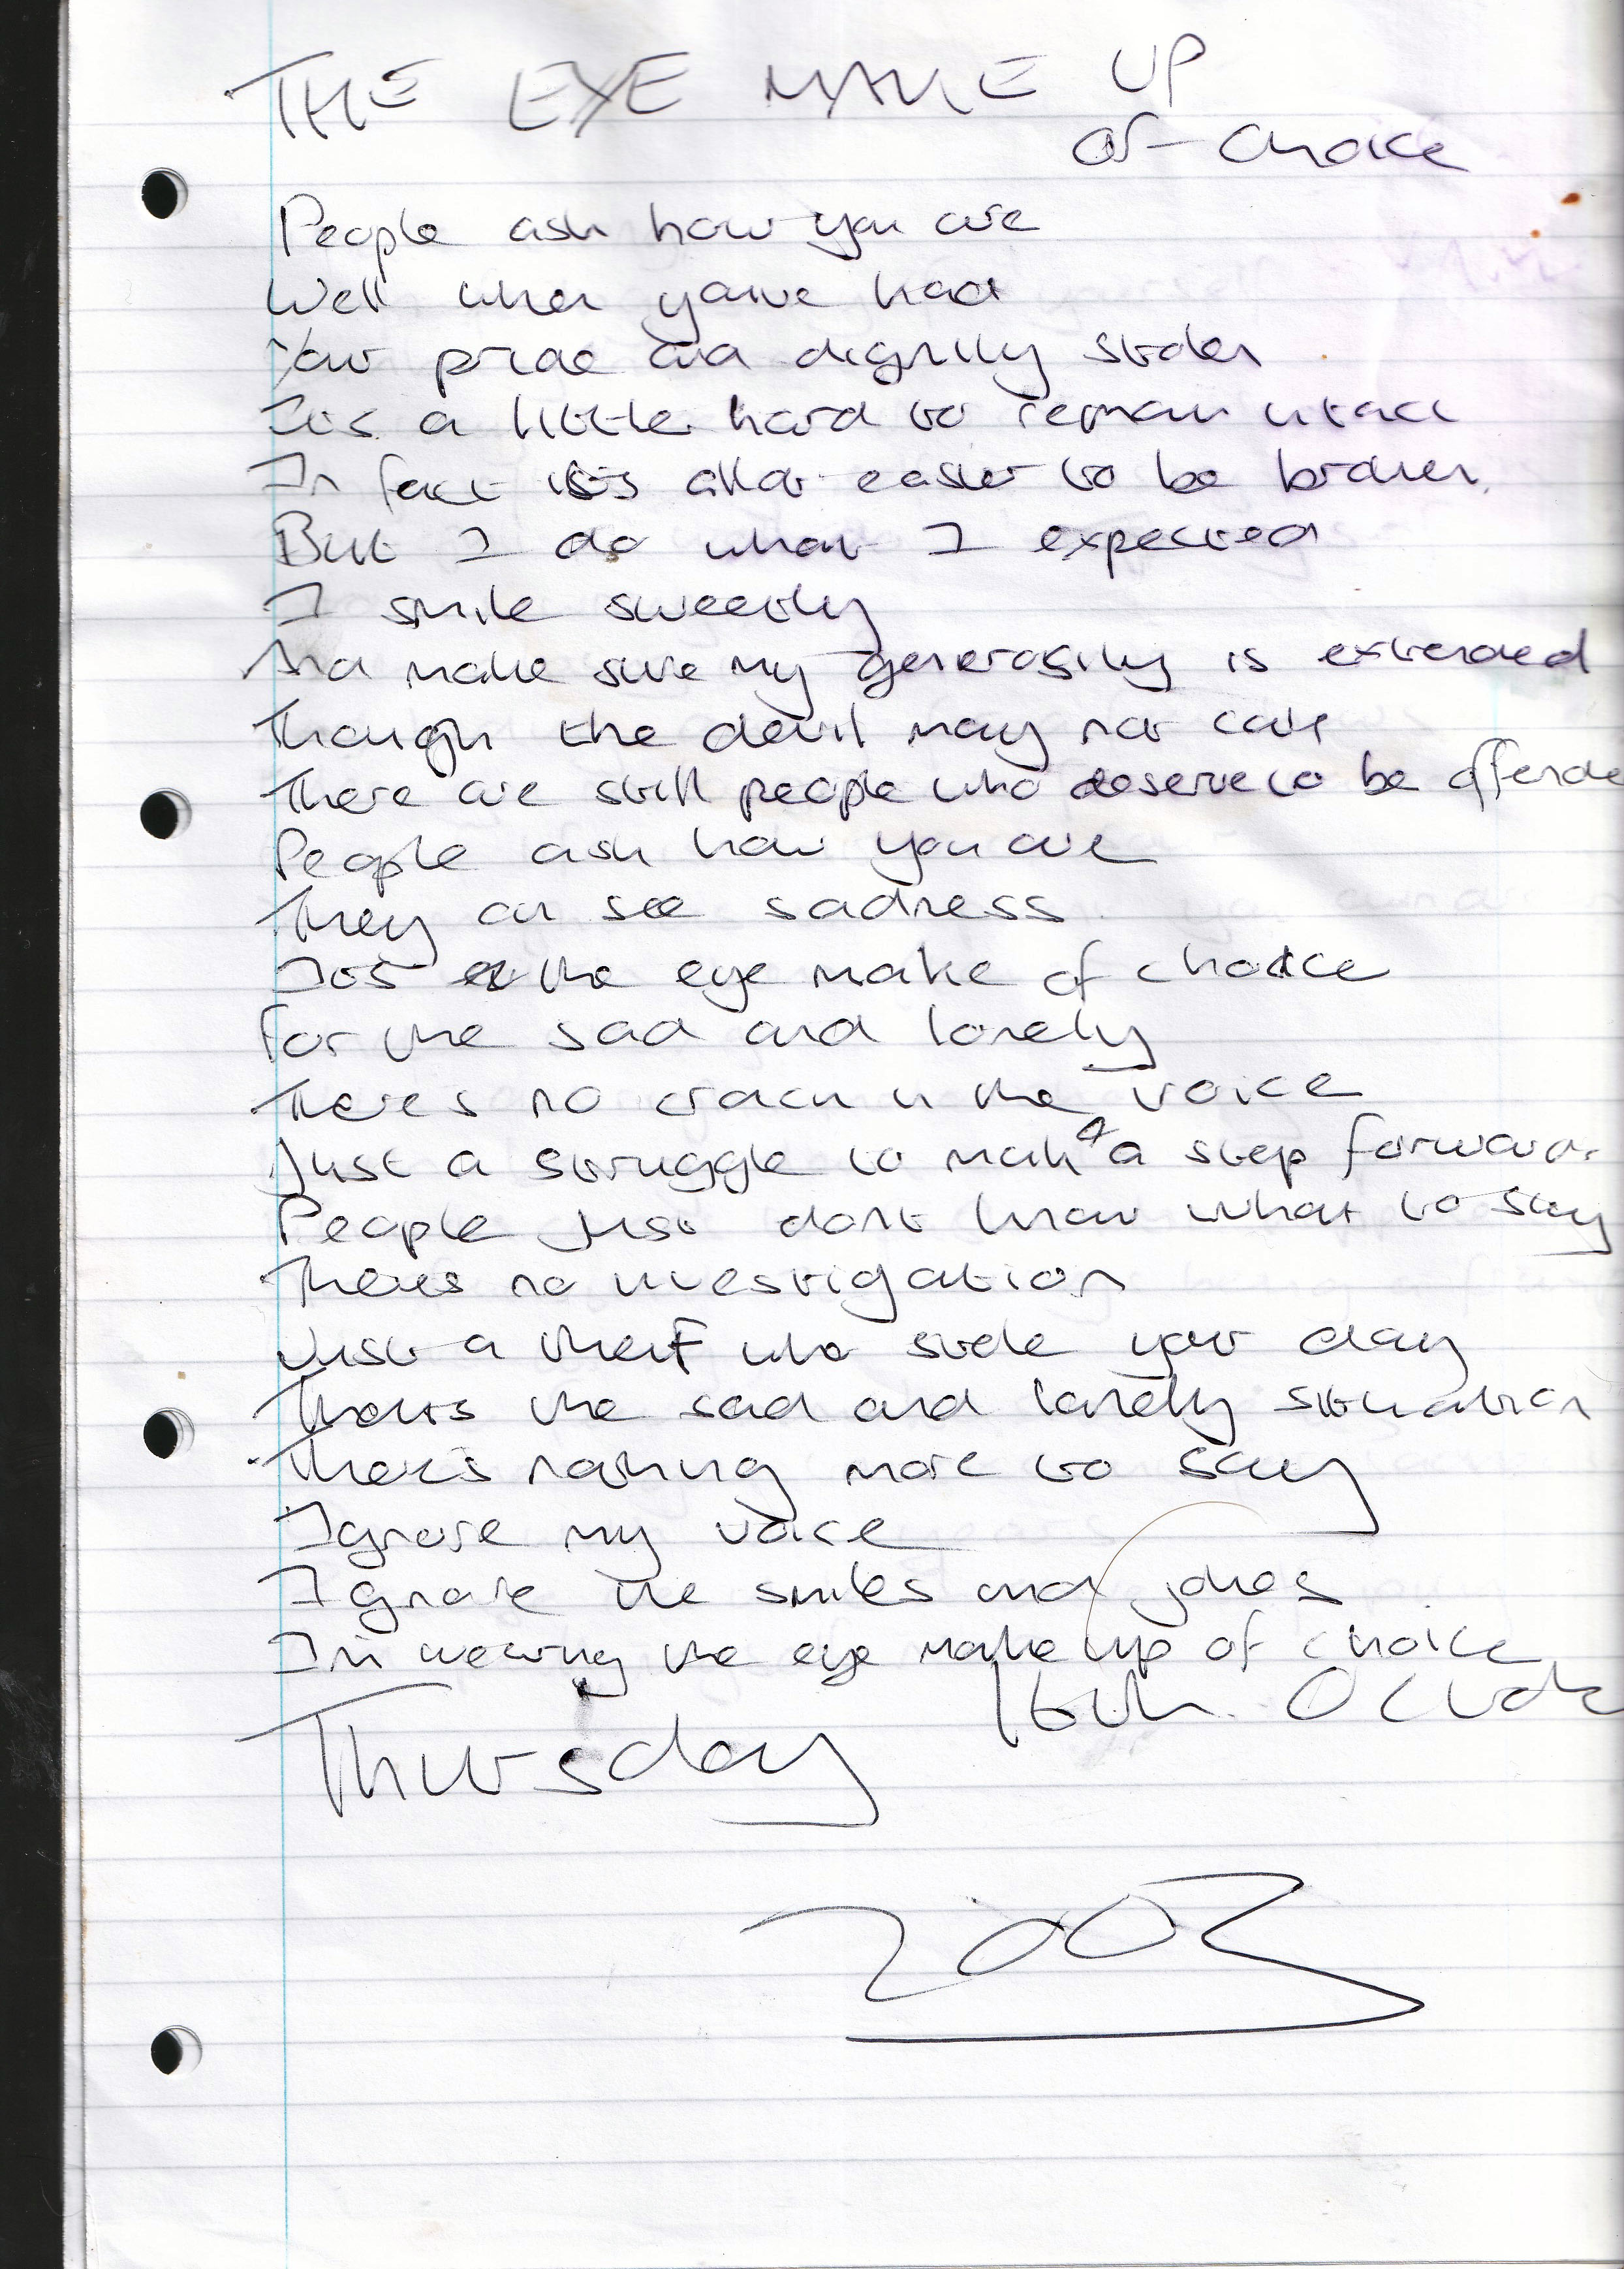 THE EYE MAKE UP
OF CHOICE
People ask how you are
Well when youve had
Your pride and dignity stolen
Its a little hard to remain intact
In fact its allot easier to be broken.
But I do what I expected
I smile sweetly
And make sure my generosity is extended
Though the devil may not care
There are still people who deserve to be offende
People ask how you are
They can see sadness
Its the eye make of choice
For the sad and lonely
Theres no crack in the voice
Just a struggle to make a step forward
People just dont know what to say
Theres no investigation
Just a theif who stole your day
Thats the sad and lonely situation
Theres nothing more to say
Ignore my voice
Ignore the smiles and jokes
Im wearing the eye make up of choice
Thursday 16th.
2003